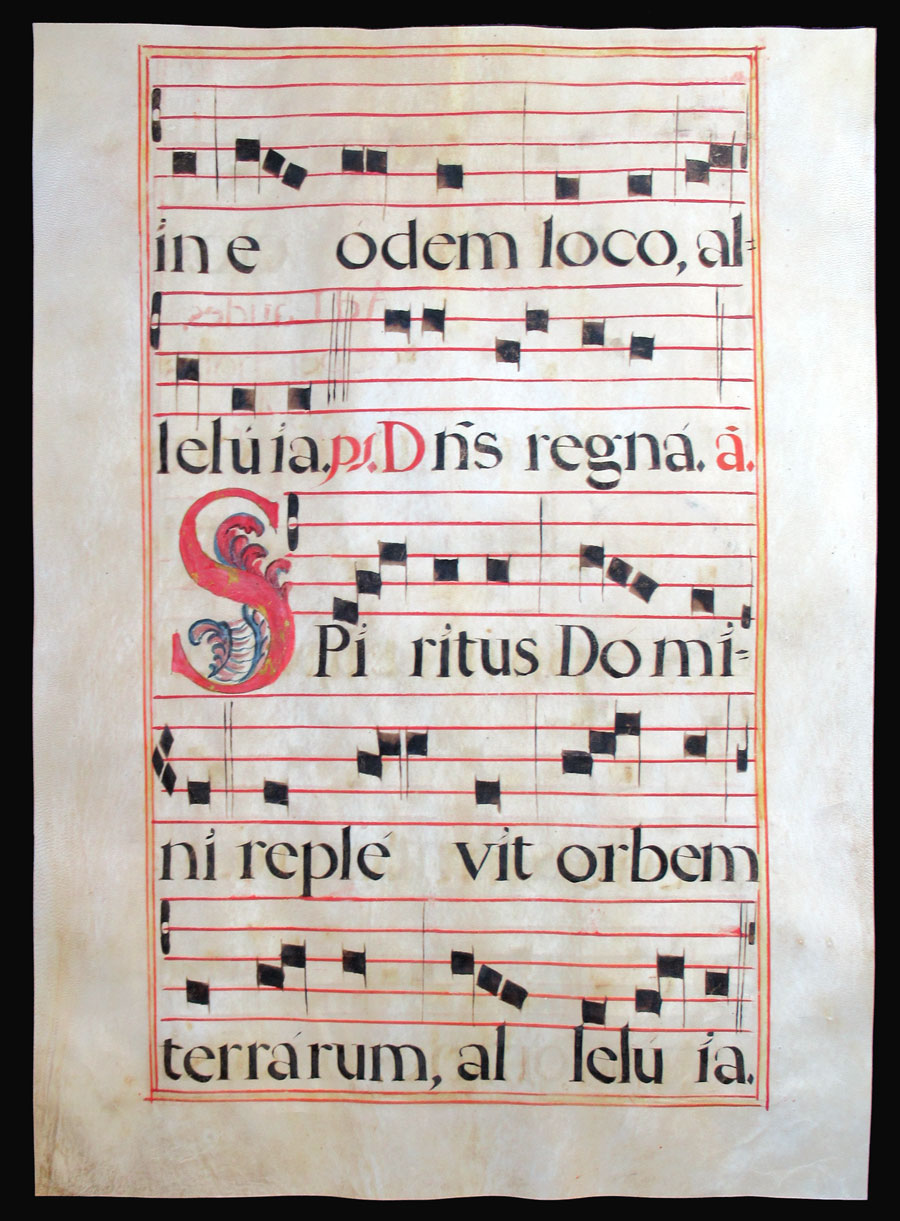 in e ódem loco, al=
lelúia. ps. Dn̄s regná. ā.
SPiritus Domi=
ni replévit orbem
terrárum, al lelúia.